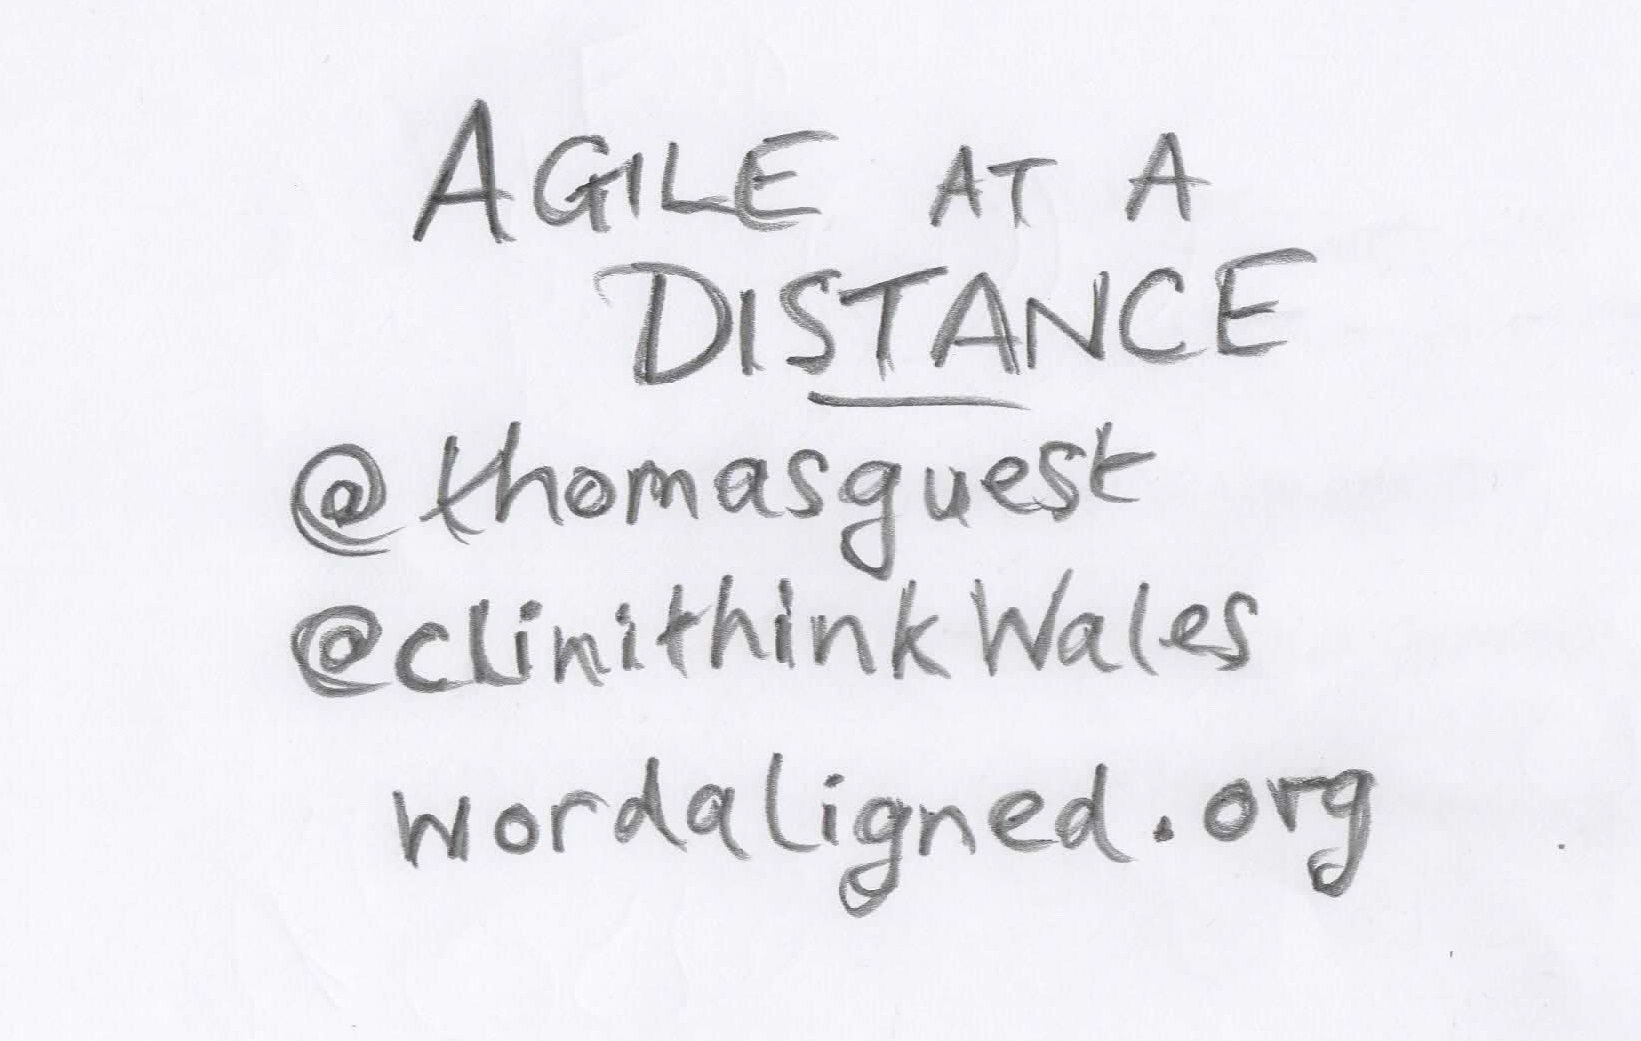 AGILE AT A
DISTANCE
@thomasguest
@clinithinkWales
wordaligned.org